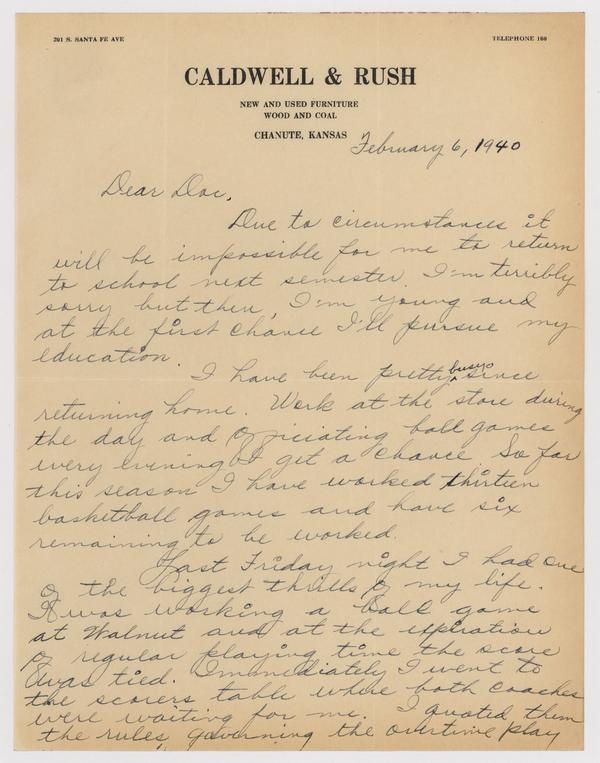 201 S. SANTA FE AVE
TELEPHONE 160
CALDWELL & RUSH
NEW AND USED FURNITURE
WOOD AND COAL
CHANUTE, KANSAS
February 6, 1940
Dear Doc,
Due to circumstances it
will be impossible for me to return
to school next semester. I'm terribly
sorry but then, I'm young and
at the first chance I'll pursue my
education.
I have been pretty busy since
returning home. Work at the store during
the day and officiating ball games
every evening I get a chance. So far
this season I have worked thirteen
basketball games and have six
remaining to be worked.
Last Friday night I had one
of the biggest thrills of my life.
I was working a ball game
at Walnut and at the expiration
of regular playing time the score
was tied. Immediately I went to
the scorers table where both coaches
were waiting for me. I quoted them
the rules, governing the overtime play